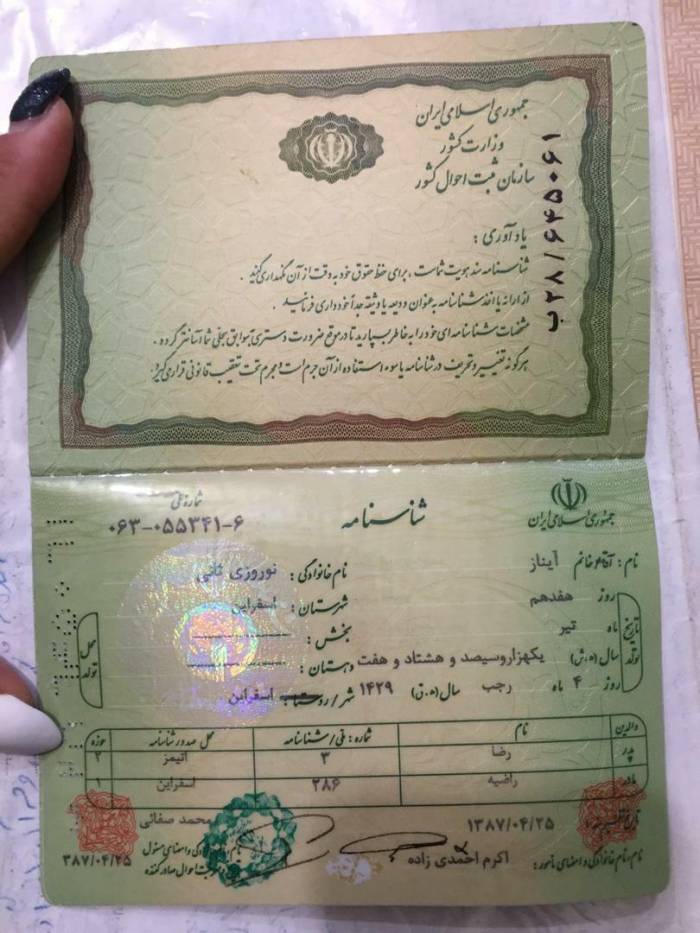 جمهوری اسلامی ایران
وزارت کشور
سازمان ثبت احوال کشور
ب۲۸/۶۴۵۰۶۱
یادآوری :
شناسنامه سند هویت شماست ، برای حفظ حقوق خود به دقت از آن نگهداری کنید .
از ارائه یا اخذ شناسنامه به عنوان ودیعه یا وثیقه جداً خودداری فرمائید .
مشخصات شناسنامه ای خود را به خاطر بسپارید تا در موقع ضرورت دسترسی به سوابق سجلی شما آسانتر گردد .
هرگونه تغییر و تحریف در شناسنامه یا سوء استفاده از آن جرم است و مجرم تحت تعقیب قانونی قرار می گیرد .
جمهوری اسلامی ایران
شناسنامه
شماره ملی
۰۶۳-۰۵۵۳۴۱-۶
نام : آقا/خانم آیناز
نام خانوادگی : نوروزی ثانی
تاریخ تولد
روز هفدهم
ماه تیر
سال (ه.ش) یکهزاروسیصد و هشتاد و هفت
روز ۴ ماه رجب سال (ه.ق) ۱۴۲۹
محل تولد
شهرستان : اسفراین
بخش : ----------
دهستان : ----------
شهر/روستا : اسفراین
والدین نام شماره : ملی/شناسنامه محل صدور شناسنامه حوزه
پدر رضا ۳ اتیمز ۲
مادر راضیه ۲۸۶ اسفراین ۱
تاریخ تنظیم سند ۱۳۸۷/۰۴/۲۵
محمد صفائی
نام، نام خانوادگی و امضای مأمور : اکرم احمدی زاده
۳۸۷/۰۴/۲۵